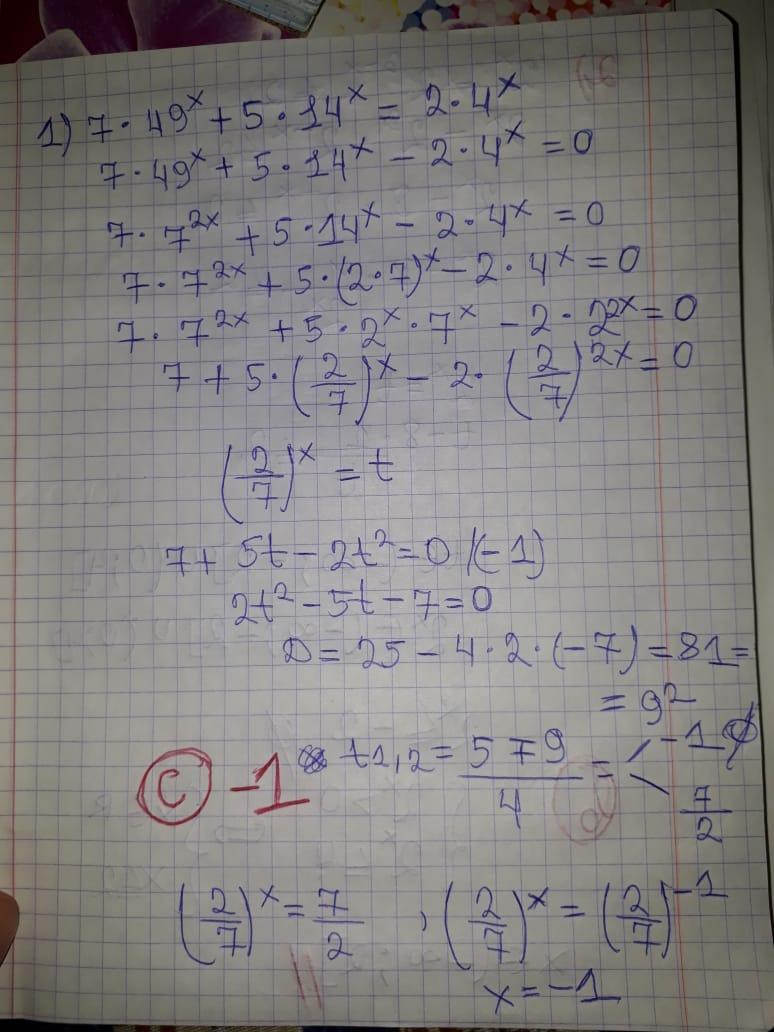 1) 7·49^x + 5·14^x = 2·4^x
7·49^x + 5·14^x − 2·4^x = 0
7·7^{2x} + 5·14^x − 2·4^x = 0
7·7^{2x} + 5·(2·7)^x − 2·4^x = 0
7·7^{2x} + 5·2^x·7^x − 2·2^{2x} = 0
7 + 5·(2/7)^x − 2·(2/7)^{2x} = 0
(2/7)^x = t
7 + 5t − 2t² = 0 /(−1)
2t² − 5t − 7 = 0
D = 25 − 4·2·(−7) = 81 =
= 9²
t1,2 = (5 ∓ 9)/4 = < −1 ∅
7/2
C −1
(2/7)^x = 7/2 , (2/7)^x = (2/7)^{−1}
x = −1